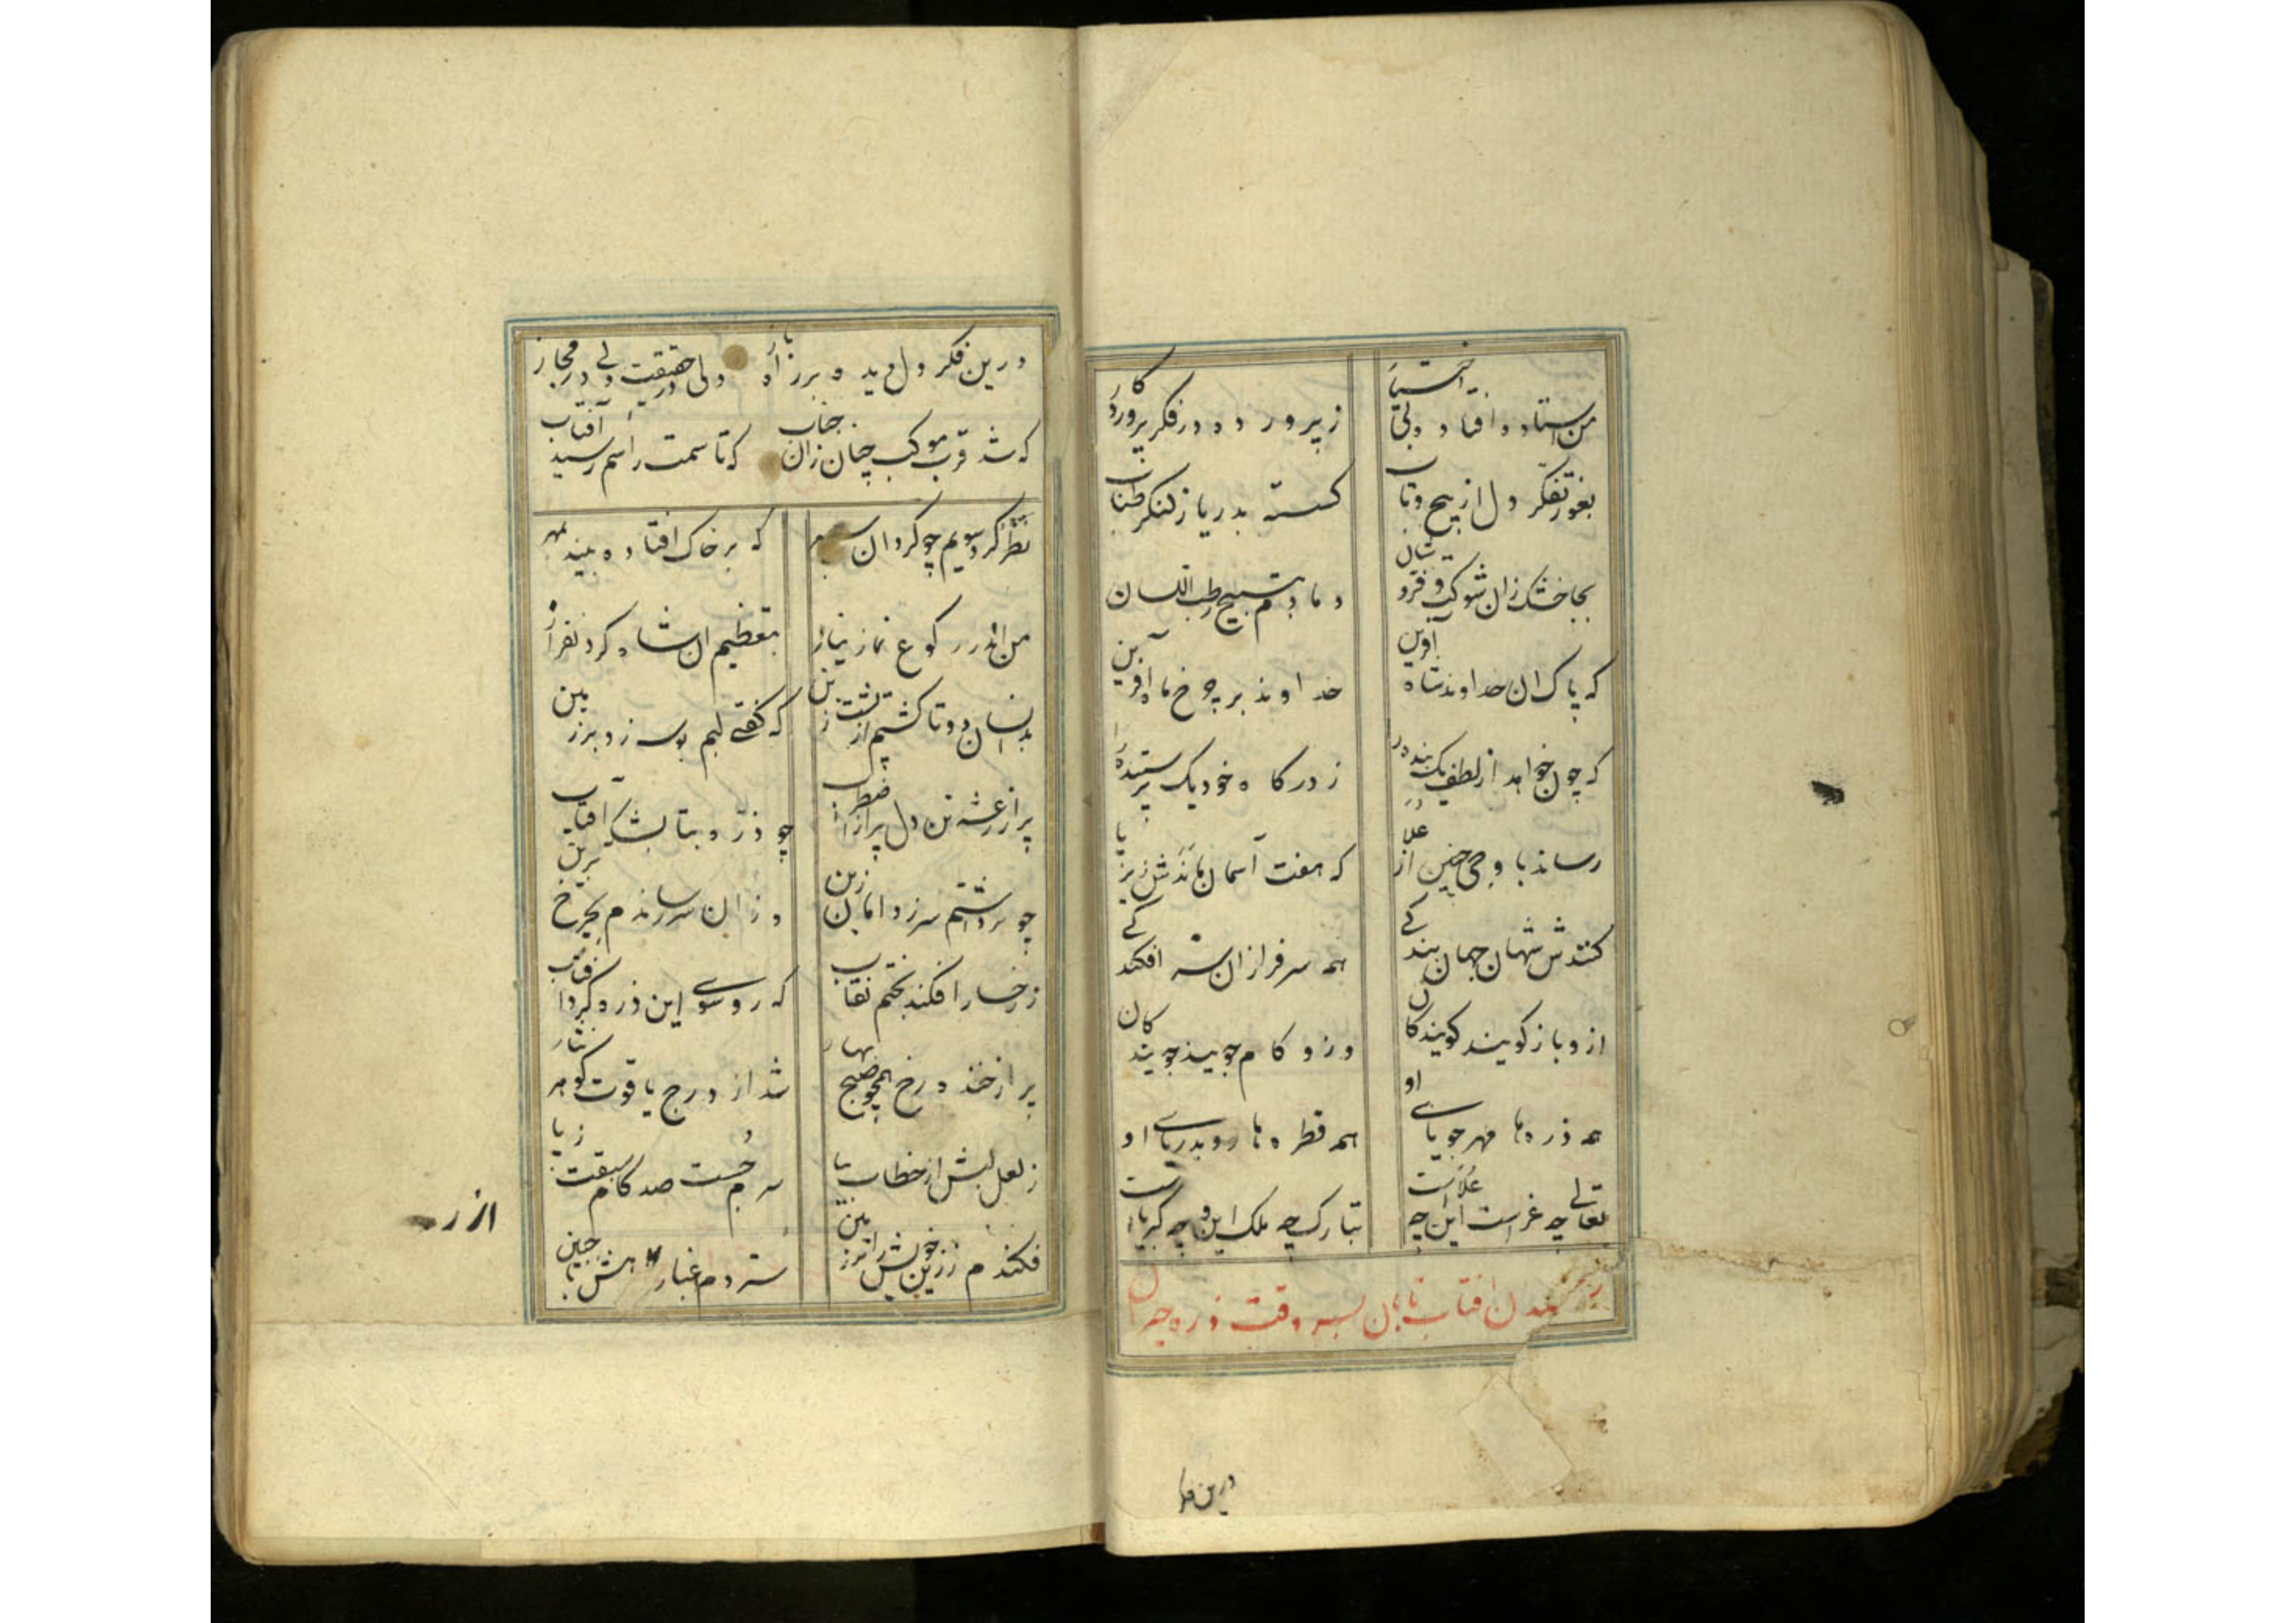 من استاده افتاده و بی اختیار
ز پرورده در فکر پروردکار
بغور تفکر دل از پیچ و تاب
کسسته بدریا ز لنکر طناب
بجا خشک زان شوکت و فر و شان
دمادم بتسبیح رطب اللسان
که پاک ان خداوند شاه آفرین
خداوند بر چرخ ماه آفرین
که چون خواهد از لطف یک بنده را
ز درکاه خود یک پرستنده را
رساند باوجی چنین از علا
که هفت آسمان ماندش زیر پا
کنندش شهان جهان بندکے
همه سرفرازان شه افکندکے
ازو باز کویند کویندکان
وزو کام جویند جویندکان
همه ذره‌ها مهر جویای او
همه قطره‌ها رو بدریاے او
تعالی چه عز است این چه علاست
تبارک چه ملک این و چه کبریاست
رسیدن افتاب تابان بسر وقت ذره
درین فکر
درین فکر دل دیده بر راه باز
ولی در حقیقت ولی در مجاز
که شد قرب موکب چنان زان جناب
که تا سمت راسم رسید آفتاب
نظر کرد سویم چو کردان سپهر
که بر خاک افتاده بیند بمهر
من اندر رکوع نماز نیاز
بتعظیم ان شاه کردنفراز
بدانسان دوتا کشتم از پشت زین
که کفتے لبم بوسه زد بر زمین
پر از رعشه تن دل پر از اضطراب
چو ذره بتابش آفتاب
چو برداشتم سر ز دامان زین
وزان سر رساندم بچرخ برین
ز رخسار افکند بختم نقاب
که رو سوے این ذره کرد افتاب
پر از خنده رخ همچو صبح بهار
شد از درج یاقوت کوهر نثار
ز لعل لبش از خطاب بیا
سرم جست صد کام سبقت ز پا
فکندم ز زین خویش را بر زمین
ستردم غبار رهش با جبین